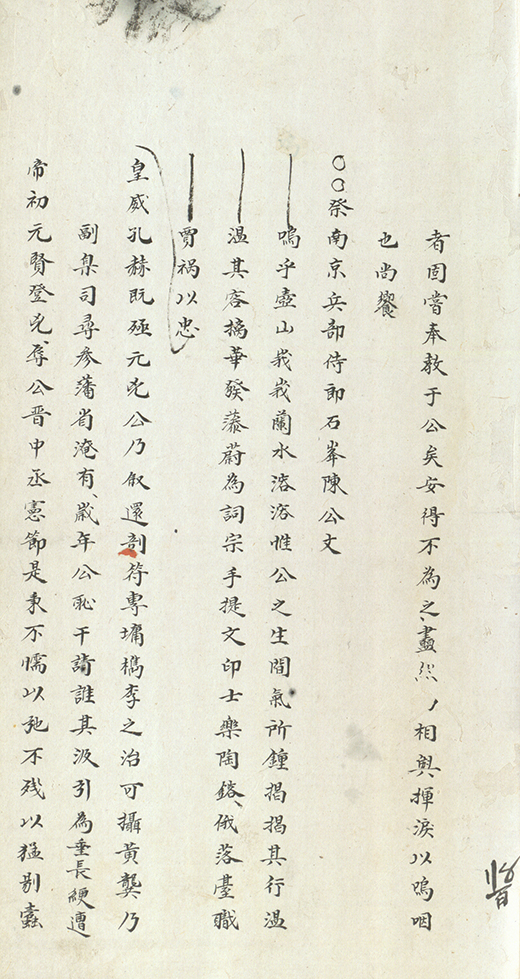 者固嘗奉教于公矣安得不為之盡然相與揮淚以嗚咽
也尚饗
〇〇祭南京兵部侍郎石峯陳公文
嗚乎壺山峩峩蘭水溶溶惟公之生間氣所鍾揭揭其行温
温其容摛華發藻蔚為詞宗手提文印士樂陶鎔俄落臺職
賈禍以忠
皇威孔赫既殛元兇公乃叙還剖符專墉檇李之治可攝黄龔乃
副臬司尋參藩省淹有歲年公恥干請誰其汲引為垂長綆遭
帝初元賢登兇辱公晋中丞憲節是秉不懦以弛不残以猛剔蠹